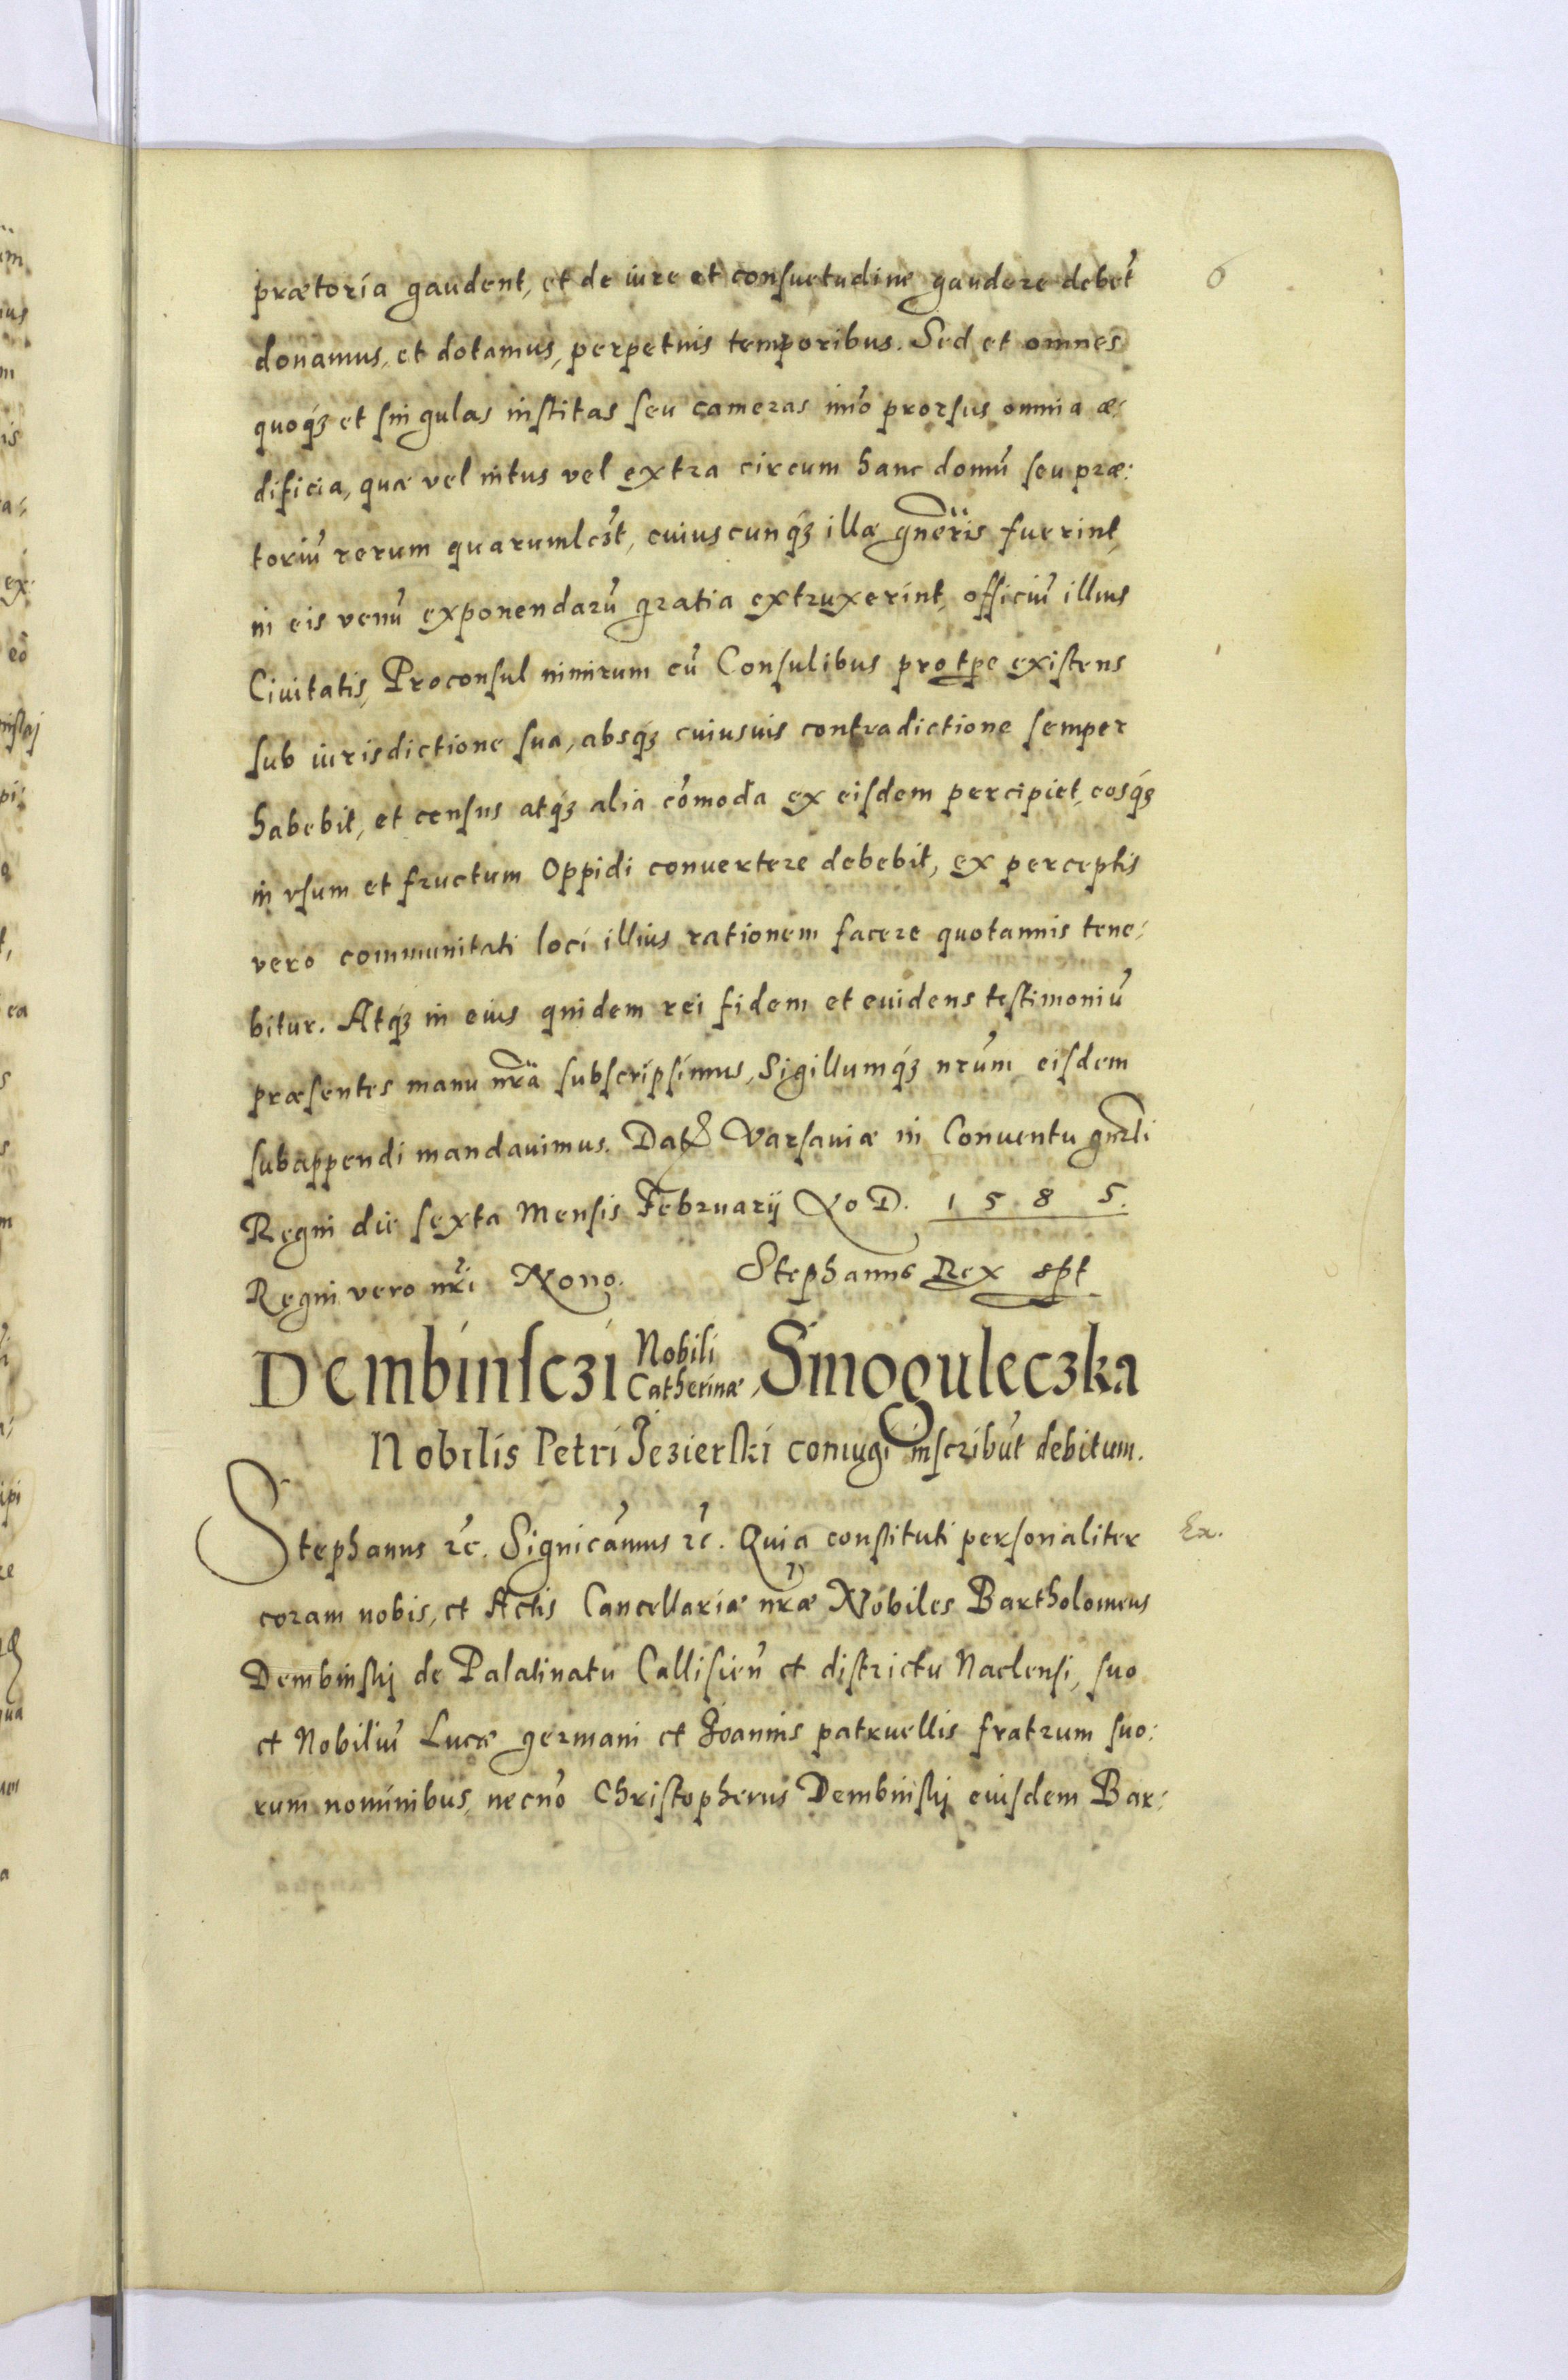 6
prætoria gaudent, et de iure et consuetudine gaudere debēt
donamus, et dotamus, perpetuis temporibus. Sed et omnes
quoqꝫ et singulas institas seu cameras imo prorsus omnia æ:
dificia, quæ vel intus vel extra circum hanc domū seu præ:
toriū rerum quarumlꝫt, cuiuscunqꝫ illæ gneris fuerint,
in eis venū exponendarū gratia extruxerint, officiū illius
Ciuitatis, Proconsul nimirum cū Consulibus pro tpe existens
sub iurisdictione sua, absqꝫ cuiusuis contradictione semper
habebit, et census atqꝫ alia cōmoda ex eisdem percipiet, eosqꝫ
in vsum et fructum Oppidi conuertere debebit, ex perceptis
vero communitati loci illius rationem facere quotannis tene:
bitur. Atqꝫ in eius quidem rei fidem et euidens testimoniū
præsentes manu nrā subscripsimus, Sigillumqꝫ nrūm eisdem
subappendi mandauimus. Datꝭ Varsauiæ in Conuentu gnrli
Regni die sexta Mensis Februarij Ao D. 1585.
Regni vero nrī Nono. Stephanus Rex sspt
Dembinsczi Nobili Catherinæ, Smoguleczka
Nobilis Petri Jezierski coniugi inscribūt debitum.
Stephanus etc. Signicāmus etc. Quia constituti personaliter
Ex.
coram nobis, et Actis Cancellariæ nræ Nobiles Bartholomeus
Dembinskj de Palatinatu Callisień et districtu Naclensi, suo
et Nobiliū Lucæ germani et Joannis patruellis fratrum suo:
rum nominibus, necnō Christopherus Dembinskj eiusdem Bar: